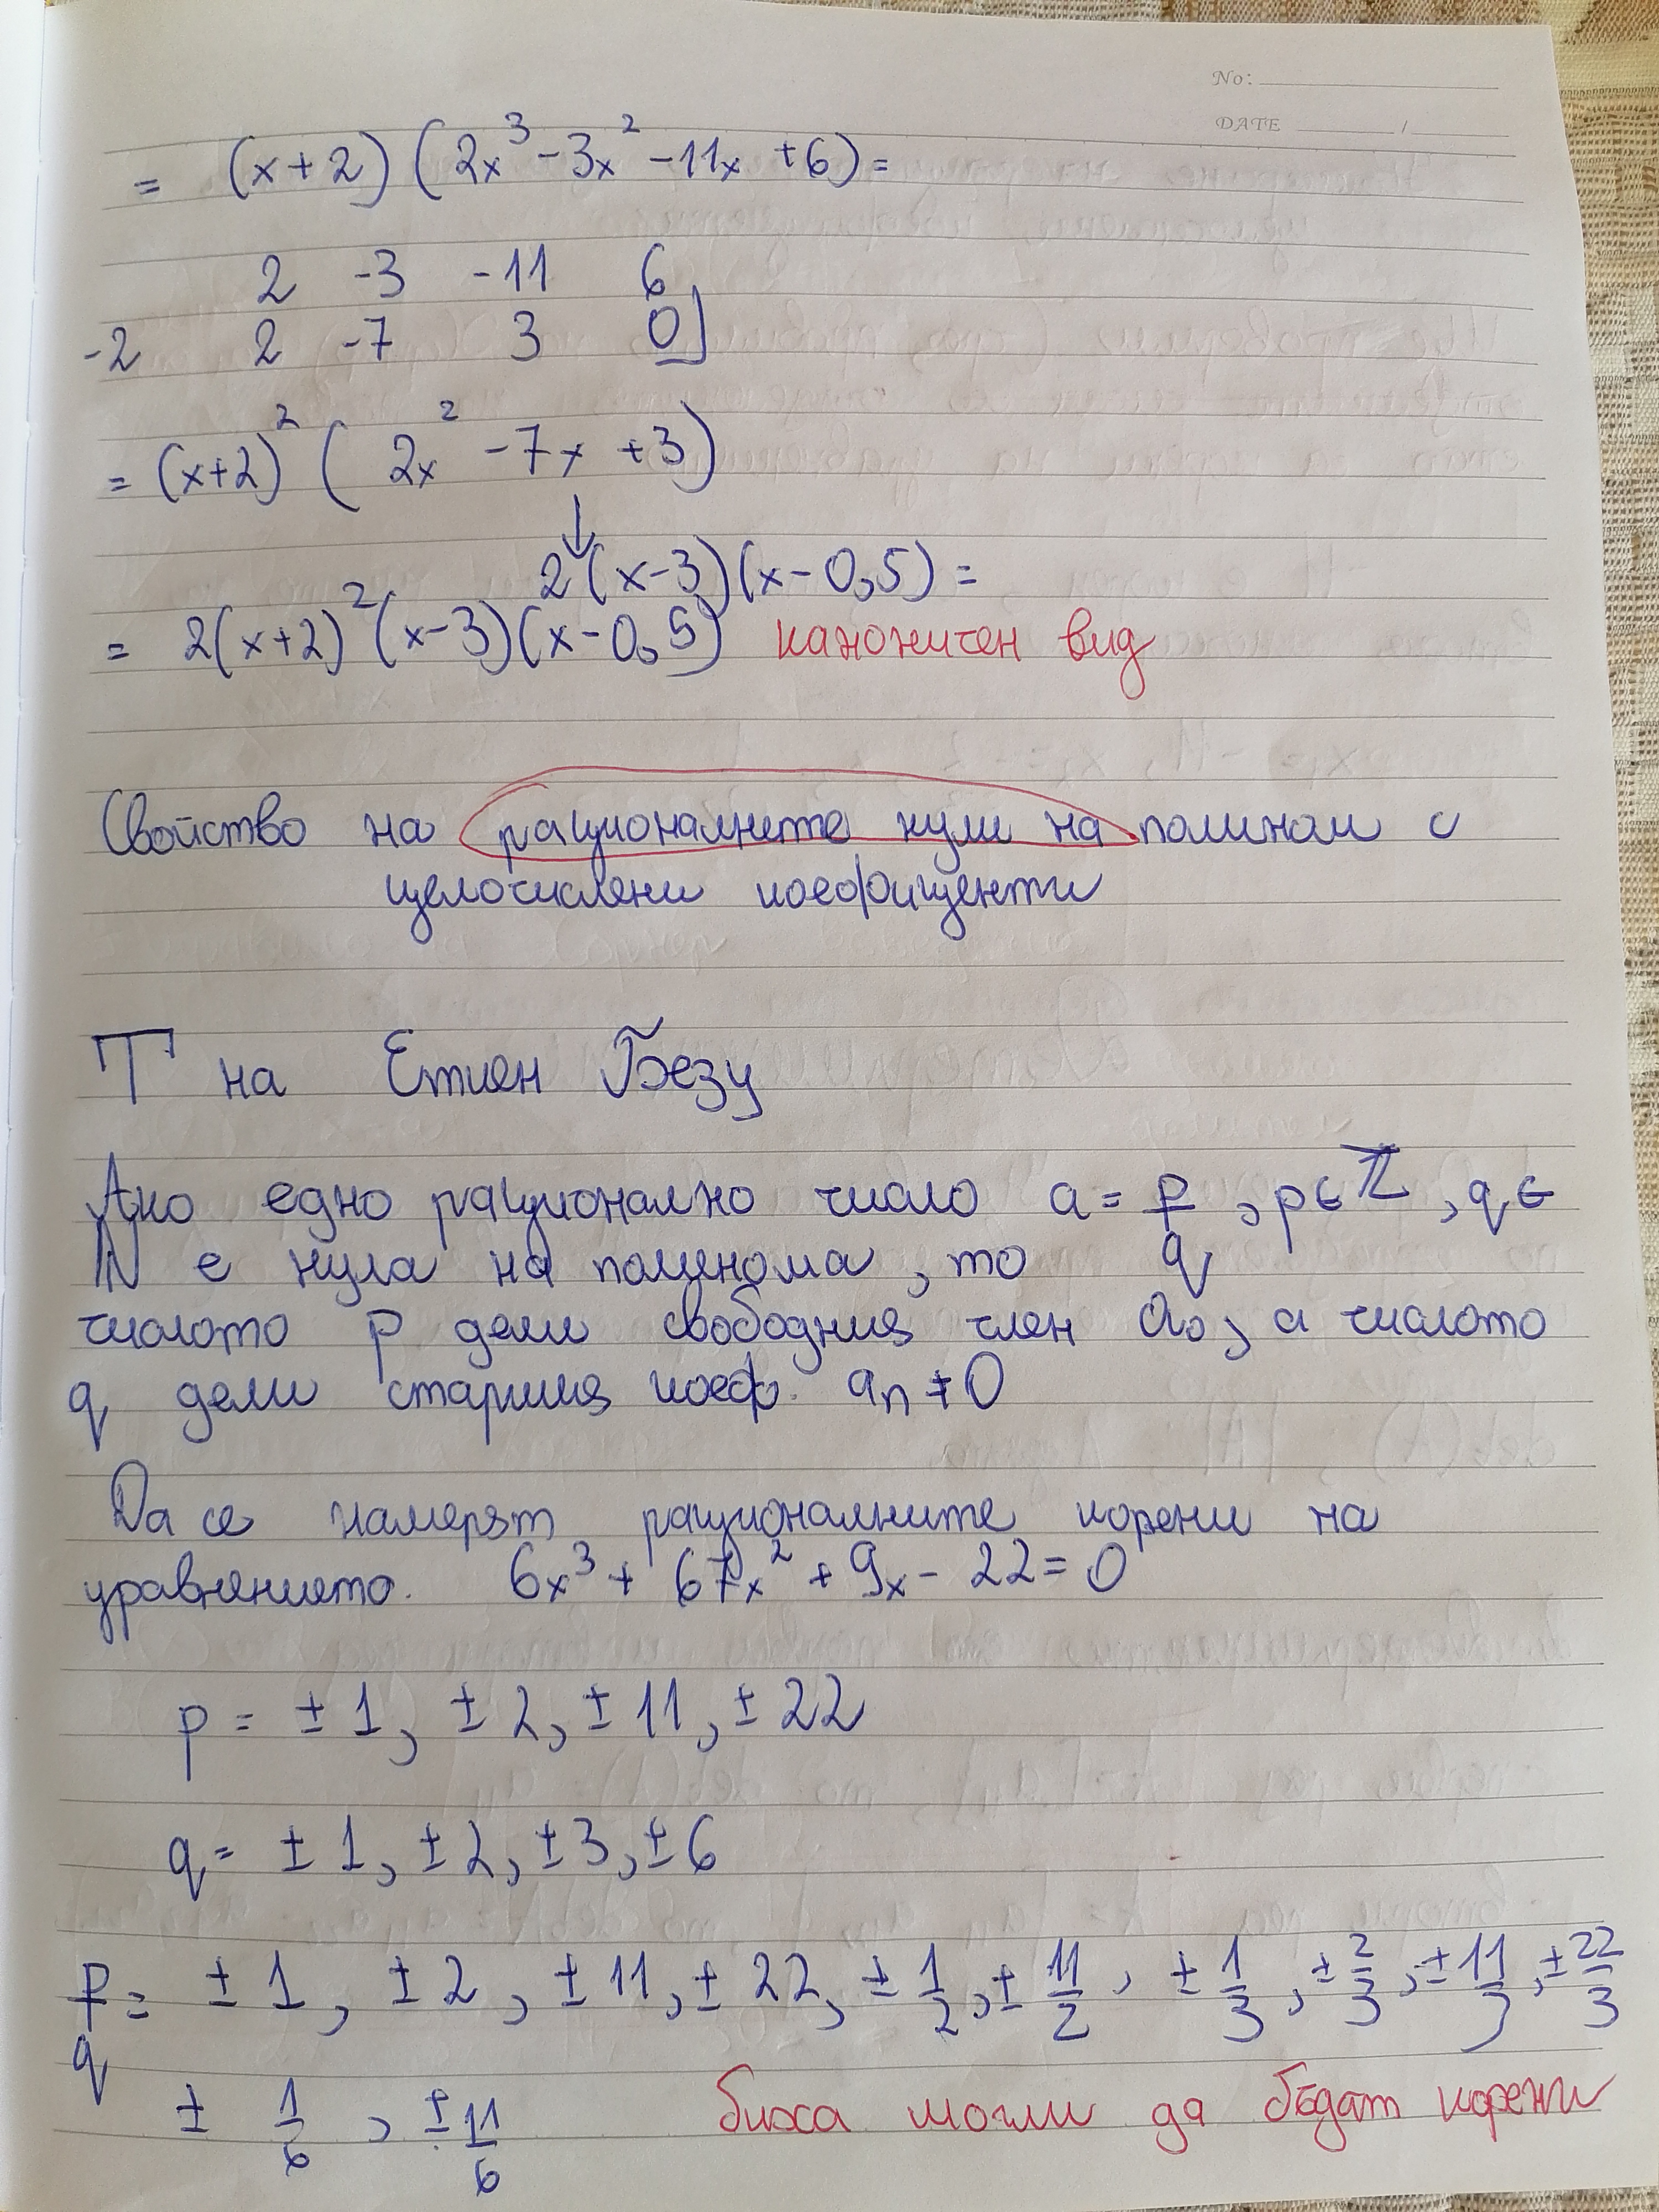 No:
DATE /
= (x+2)(2x³-3x²-11x+6)=
2 -3 -11 6
-2 2 -7 3 0
= (x+2)² (2x² -7x +3)
↓
2(x-3)(x-0,5) =
= 2(x+2)²(x-3)(x-0,5) каноничен вид
Свойство на рационалнете нули на полином с
целочислени коефициенти
Т на Етиен Безу
Ако едно рационално число a= p/q, p∈ℤ, q∈
ℕ е нула на полинома, то
числото p дели свободния член a₀, а числото
q дели старшия коеф. aₙ≠0
Да се намерят рационалните корени на
уравнението. 6x³+ 67x² + 9x- 22=0
p= ±1, ±2, ±11, ±22
q= ±1, ±2, ±3, ±6
p/q= ±1, ±2, ±11, ±22, ±1/2, ±11/2, ±1/3, ±2/3, ±11/3, ±22/3
±1/6, ±11/6 биха могли да бъдат корени